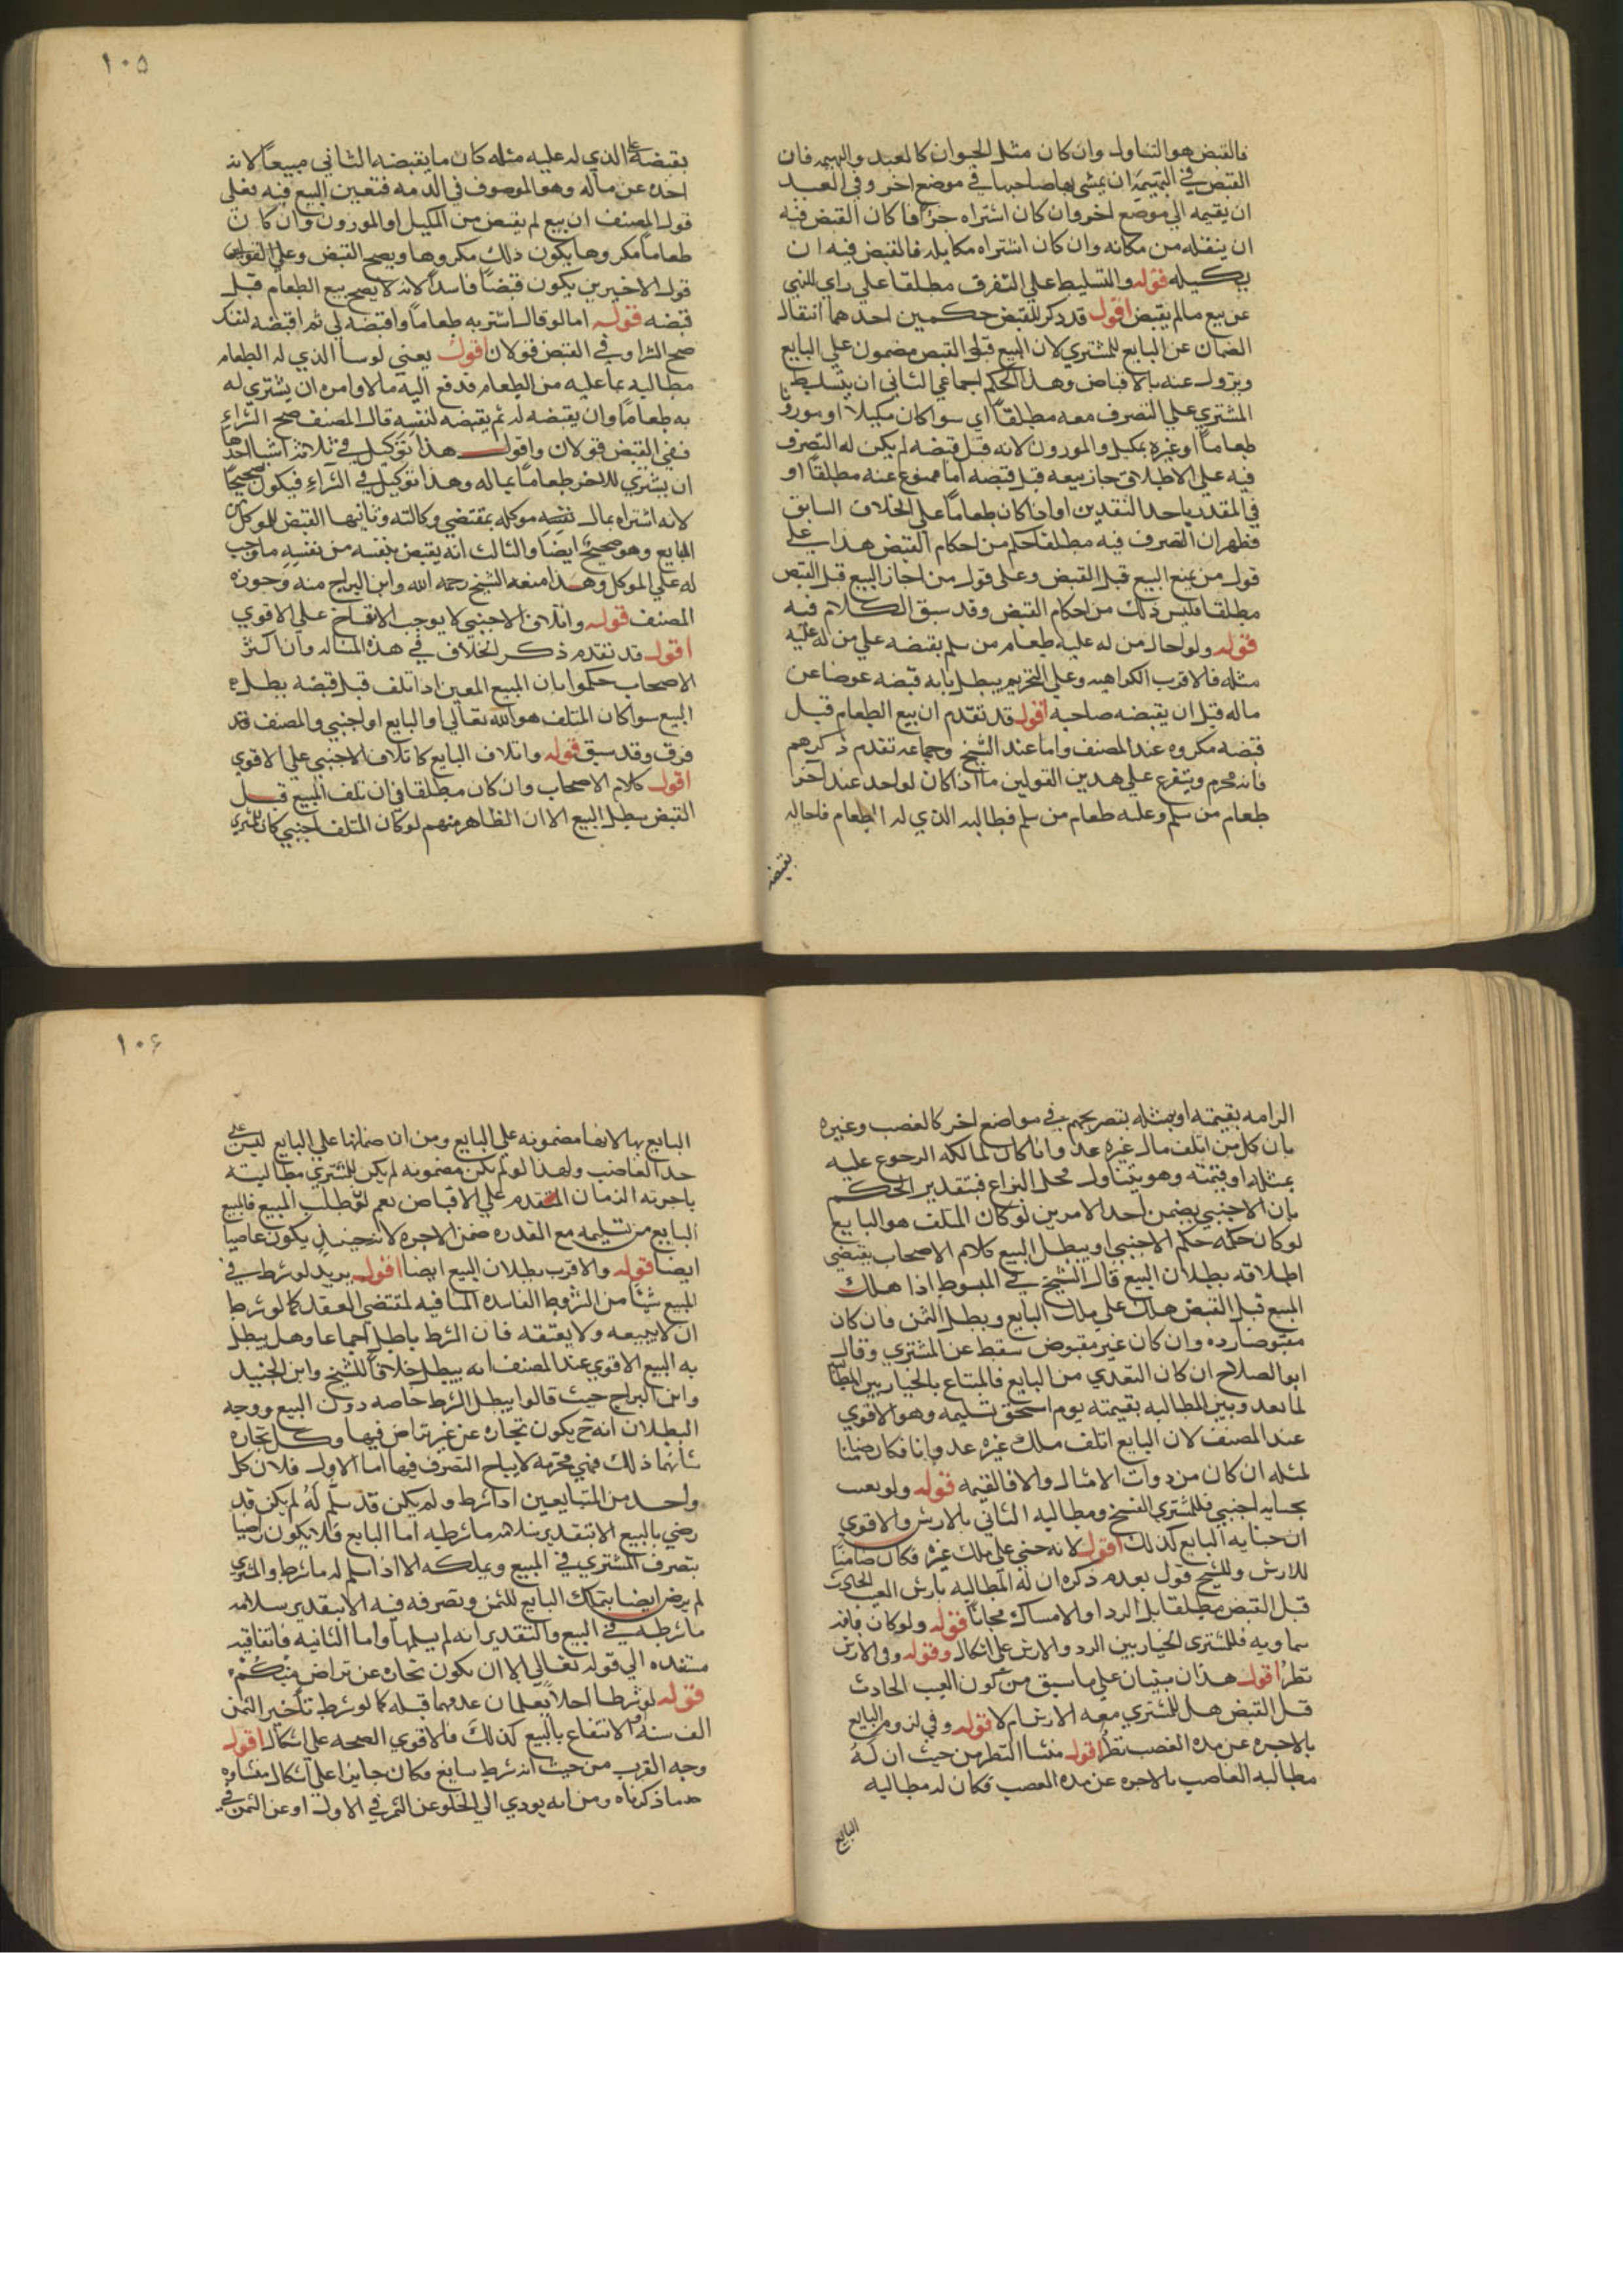 فالقبض هو التناول وان كان مثل الحيوان كالعبد والبهيمه فان
القبض في البهيمة ان يمشي بها صاحبها في موضع اخر وفي العبد
ان يقيمه الي موضع اخر وان كان اشتراه جزافا كان القبض فيه
ان ينقله من مكانه وان كان اشتراه مكايله فالقبض فيه ان
يكيله قوله والتسليط علي التصرف مطلقا علي راي للنهي
عن بيع مالم يقبض اقول قد ذكر للقبض حكمين احدهما انتقال
الضمان عن البايع للمشتري لان المبيع قبل القبض مضمون علي البايع
ويزول عنه بالاقباض وهذا الحكم اجماعي الثاني ان يتسلط
المشتري علي التصرف معه مطلقاً اي سوا كان مكيلاً او موزونا
طعاماً او غيره بمكيل والموزون لانه قبل قبضه لم يكن له التصرف
فيه علي الاطلاق جاز بيعه قبل قبضه اما ممنوع عنه مطلقاً او
في المقدر باحد النقدين او اذا كان طعاماً علي الخلاف السابق
فظهر ان التصرف فيه مطلقا حكم من احكام القبض هذا علي
قول من يمنع البيع قبل القبض وعلي قول من اجاز البيع قبل القبض
مطلقا فليس ذلك من احكام القبض وقد سبق الكلام فيه
قوله ولو احال من له عليه طعام من سلم بقبضه علي من له عليه
مثله فالاقرب الكراهيه وعلي التحريم يبطل لانه قبضه عوضا عن
ماله قبل ان يقبضه صاحبه اقول قد تقدم ان بيع الطعام قبل
قبضه مكروه عند المصنف واما عند الشيخ وجماعه تقدم ذكرهم
فانه محرم ويتفرع علي هذين القولين ما اذا كان لواحد عند اخر
طعام من سلم وعليه طعام من سلم فطالبه الذي له الطعام فاحاله
بقبضه
١٠٥
بقبضه علي الذي له عليه مثله كان ما يقبضه الثاني مبيعاً لانه
اخذه عن ماله وهو الموصوف في الذمه فتعين البيع فيه فعلي
قول المصنف ان بيع لم يقبض من المكيل او الموزون وان كان
طعاماً مكروها يكون ذلك مكروها ويصح القبض وعلي القولين
قول الاخيرين يكون قبضاً فاسداً لانه لا يصح بيع الطعام قبل
قبضه قوله اما لو قال اشتر به طعاماً واقبضه لي ثم اقبضه لنفسك
صح الشرا وفي القبض قولان اقول يعني لو سأل الذي له الطعام
مطالبه بما عليه من الطعام فدفع اليه مالا وامره ان يشتري له
به طعاماً وان يقبضه له ثم يقبضه لنفسه قال المصنف صح الشراء
ففي القبض قولان واقول هذا توكيل في ثلاثة اشيا احدها
ان يشتري للاخر طعاماً بماله وهذا توكيل في الشراء فيكون صحيحاً
لانه اشتراه بمال نفسه موكله بمقتضي وكالته وثانيها القبض للموكل من
البايع وهو صحيح ايضاً والثالث انه يقبض بنفسه من نفسه ما وجب
له علي الموكل وهذا منعه الشيخ رحمه الله وابن البراج منه وجوزه
المصنف قوله واتلاف الاجنبي لا يوجب الانفساخ علي الاقوي
اقول قد تقدم ذكر الخلاف في هذه المساله وان اكثر
الاصحاب حكموا بان المبيع المعين اذا تلف قبل قبضه بطل
البيع سوا كان المتلف هو الله تعالي او البايع او اجنبي والمصنف قد
فرق وقد سبق قوله واتلاف البايع كاتلاف الاجنبي علي الاقوي
اقول كلام الاصحاب وان كان مطلقا في ان تلف المبيع قبل
القبض يبطل البيع الا ان الظاهر منهم لو كان المتلف اجنبي كان للمشتري
الزامه بقيمته او بمثله بتصريحهم في مواضع اخر كالغصب وغيره
بان كل من اتلف مال غيره عدوانا كان لمالكه الرجوع عليه
بمثله او قيمته وهو يتناول محل النزاع فبتقدير الحكم
بان الاجنبي يضمن احد الامرين لو كان المتلف هو البايع
لو كان حكمه حكم الاجنبي او يبطل البيع كلام الاصحاب يقتضي
اطلاقه بطلان البيع قال الشيخ في المبسوط اذا هلك
المبيع قبل القبض هلك علي ملك البايع وبطل الثمن فان كان
مقبوضا رده وان كان غير مقبوض سقط عن المشتري وقال
ابو الصلاح ان كان التعدي من البايع فالمبتاع بالخيار بين المطالبة
لما بعد وبين المطالبه بقيمته يوم استحق تسليمه وهو الاقوي
عند المصنف لان البايع اتلف ملك غيره عدوانا فكان ضامنا
لمثله ان كان من ذوات الامثال والا فالقيمه قوله ولو تعيب
بجنايه اجنبي فللمشتري الفسخ ومطالبه الثاني بالارش والاقوي
ان جنايه البايع كذلك اقول لانه جني علي ملك غيره فكان ضامنا
للارش وللشيخ قول بعدم ذكره ان له المطالبه بارش العيب الحادث
قبل القبض مطلقا بل الرد او الامساك مجاناً قوله ولو كان بافه
سماويه فللمشتري الخيار بين الرد والارش علي اشكال وقوله وفي الارش
نظر اقول هذان مبنيان علي ما سبق من كون العيب الحادث
قبل القبض هل للمشتري معه الارش ام لا قوله وفي لزوم البايع
بالاجره عن مده الغصب نظر اقول منشا النظر من حيث ان له
مطالبه الغاصب بالاجره عن مده الغصب فكان له مطالبه
البايع
١٠۶
البايع بها لانها مضمونه علي البايع ومن ان ضمانها علي البايع ليس علي
حد الغاصب ولهذا لو لم يكن مضمونه لم يكن للمشتري مطالبته
باجرته الزمان المتقدم علي الاقباض نعم لو طلب المبيع فامتنع
البايع من تسليمه مع القدره ضمن الاجره لانه حينئذ يكون عاصيا
ايضا قوله والاقرب بطلان البيع ايضا اقول يريد لو شرط في
المبيع شيئا من الشروط الفاسده المنافيه لمقتضي العقد كما لو شرط
ان لا يبيعه ولا يعتقه فان الشرط باطل اجماعا وهل يبطل
به البيع الاقوي عند المصنف انه يبطل خلافاً للشيخ وابن الجنيد
وابن البراج حيث قالوا يبطل الشرط خاصه دون البيع ووجه
البطلان انه ح يكون تجاره عن غير تراض فيها وكل تجاره
شانها ذلك فهي محرمه لا يباح التصرف فيها اما الاول فلان كل
واحد من المتبايعين اذا شرط ولم يكن قد سلم له لم يكن قد
رضي بالبيع الا بتقدير سلامه ما شرطه اما البايع فلا يكون رضيا
بتصرف المشتري في المبيع ويملكه الا اذا سلم له ما شرط والمشتري
لم يرض ايضا بتملك البايع للثمن وتصرفه فيه الا بتقدير سلامه
ما شرطه في البيع والتقدير انه لم يسلم لها واما الثانيه فاتفاقيه
مستنده الي قوله تعالي الا ان يكون تجاره عن تراض منكم
قوله لو شرطا اجلا يعلمان عدمهما قبله كما لو شرط تاخير الثمن
الف سنه او الانتفاع بالبيع كذلك فالاقوي الصحه علي اشكال اقول
وجه القرب من حيث انه شرط سايغ فكان جايزا علي اشكال منشاوه
مما ذكرناه ومن انه يودي الي الخلو عن الثمر في الاول او عن الثمن في